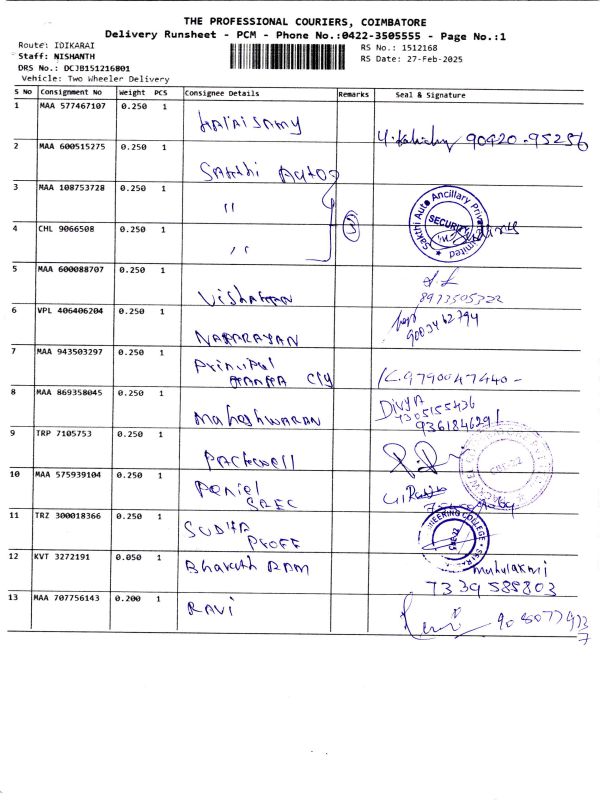 THE PROFESSIONAL COURIERS, COIMBATORE
Delivery Runsheet - PCM - Phone No.:0422-3505555 - Page No.:1
Route: IDIKARAI
Staff: NISHANTH
DRS No.: DCJB151216801
Vehicle: Two Wheeler Delivery
RS No.: 1512168
RS Date: 27-Feb-2025
S No Consignment No Weight PCS Consignee Details Remarks Seal & Signature
1 MAA 577467107 0.250 1 90420-95256
2 MAA 600515275 0.250 1 Sakthi Autos
3 MAA 108753728 0.250 1 〃
Sakthi Auto Ancillary Private Limited
SECURITY
4 CHL 9066508 0.250 1 〃
3
5 MAA 600088707 0.250 1
8973505322
6 VPL 406406204 0.250 1 NARARAYAN
9003462794
7 MAA 943503297 0.250 1 Principal
Clg K. 9790047440-
8 MAA 869358045 0.250 1 Maheshwaran DIVYA
7305155436
9361846291
9 TRP 7105753 0.250 1 Packwell
CBE-22
10 MAA 575939104 0.250 1 Peniel
SREC
11 TRZ 300018366 0.250 1 SUDHA
PROFF
12 KVT 3272191 0.050 1 Bharath RAM muthulakmi
7339585803
13 MAA 707756143 0.200 1 RAVI Ravi